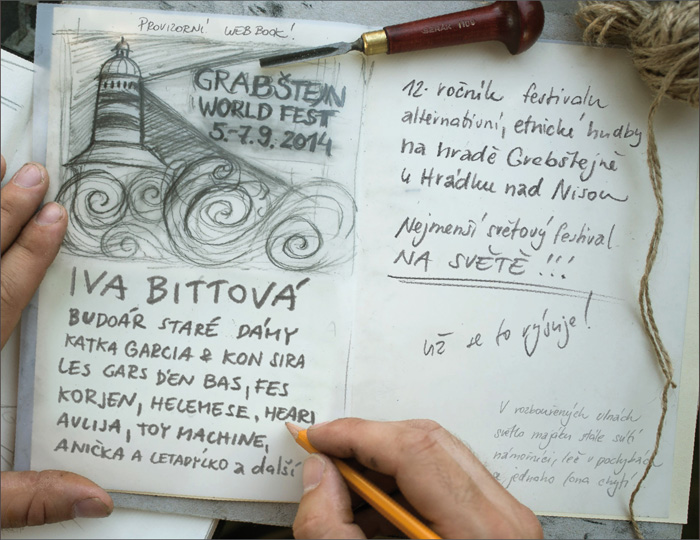 PROVIZORNÍ WEBBOOK!
GRABŠTEJN
WORLD FEST
5.-7.9. 2014
IVA BITTOVÁ
BUDOÁR STARÉ DÁMY
KATKA GARCIA & KON SIRA
LES GARS D'EN BAS, FES
KORJEN, HELEMESE, HEARI
AVLIJA, TOY MACHINE,
ANIČKA A LETADÝLKO a další
12. ročník festivalu
alternativní, etnické hudby
na hradě Grabštejně
u Hrádku nad Nisou
Nejmenší světový festival
NA SVĚTĚ!!!
už se to rýsuje!
V rozbouřených vlnách
světlo majáku stále svítí
námořníci, leč v pochybách
a jednoho fona chytí